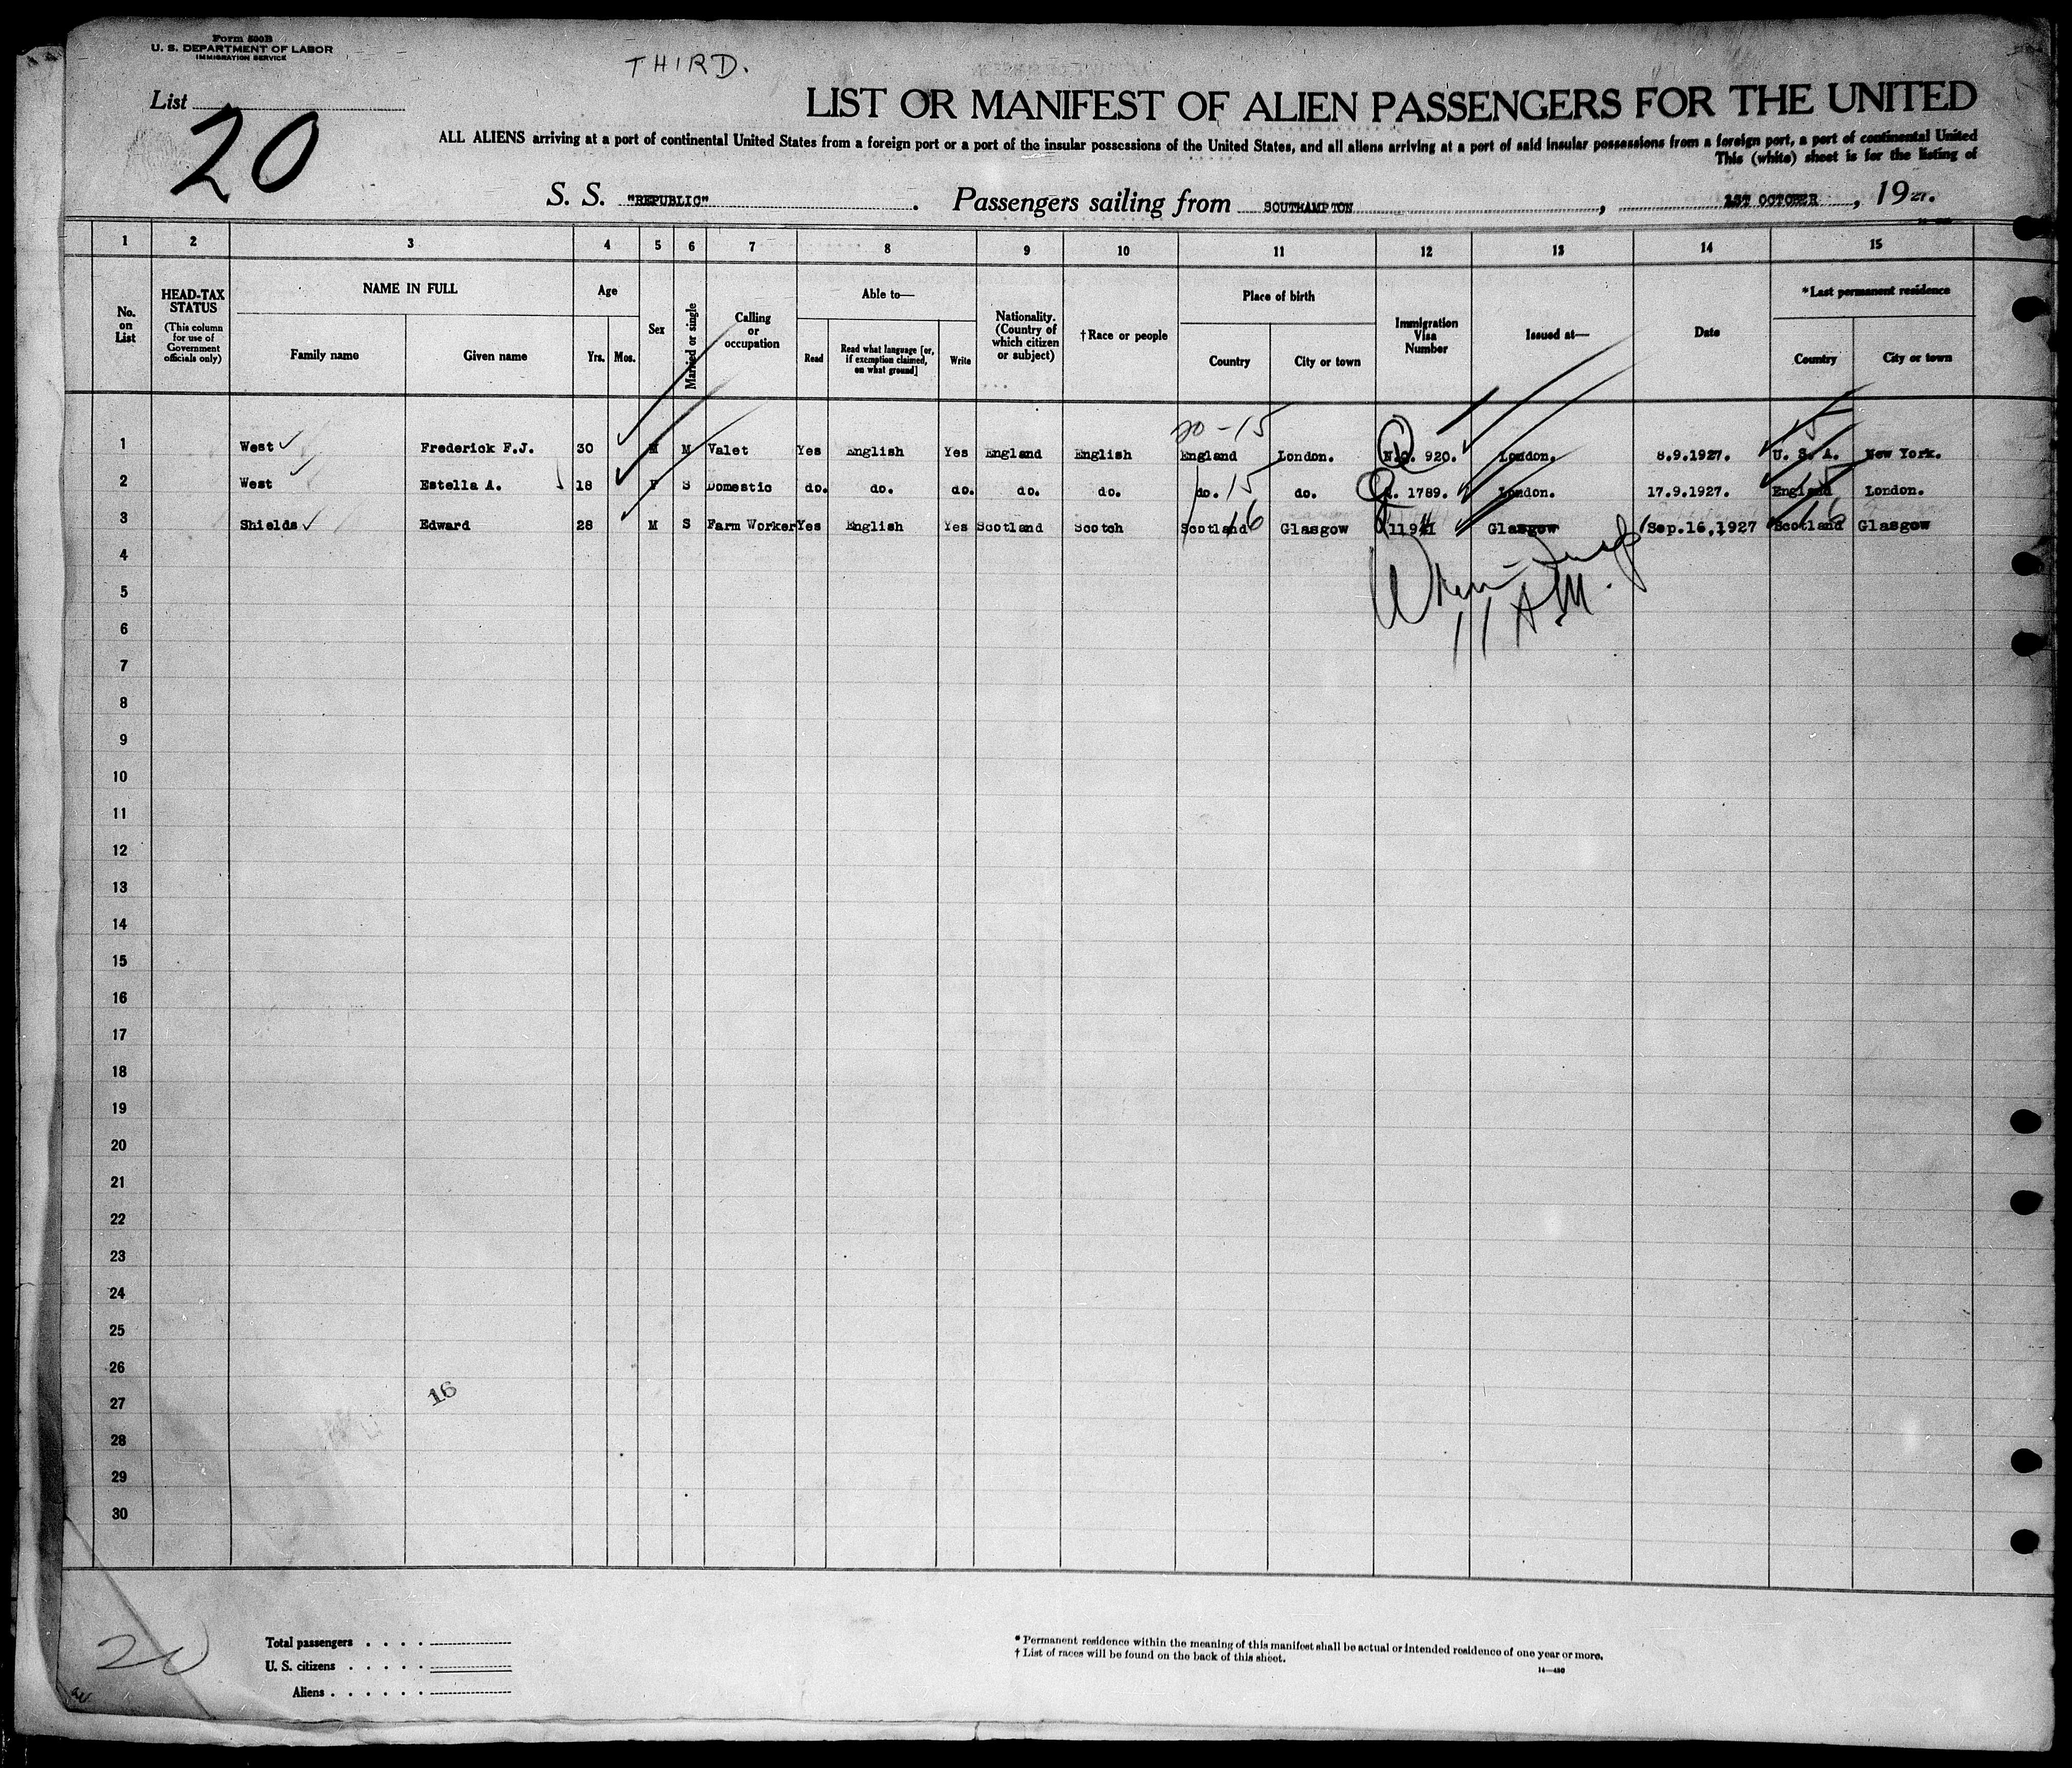 Form 500B
U. S. DEPARTMENT OF LABOR
IMMIGRATION SERVICE
THIRD.
List 20
LIST OR MANIFEST OF ALIEN PASSENGERS FOR THE UNITED
ALL ALIENS arriving at a port of continental United States from a foreign port or a port of the insular possessions of the United States, and all aliens arriving at a port of said insular possessions from a foreign port, a port of continental United
This (white) sheet is for the listing of
S. S. "REPUBLIC". Passengers sailing from SOUTHAMPTON, 1ST OCTOBER, 1927.
1 2 3 4 5 6 7 8 9 10 11 12 13 14 15
No. on List
HEAD-TAX STATUS (This column for use of Government officials only)
NAME IN FULL Family name Given name
Age Yrs. Mos.
Sex
Married or single
Calling or occupation
Able to— Read Read what language [or, if exemption claimed, on what ground] Write
Nationality. (Country of which citizen or subject)
†Race or people
Place of birth Country City or town
Immigration Visa Number
Issued at—
Date
*Last permanent residence Country City or town
20-15 15
1 West Frederick F.J. 30 M M Valet Yes English Yes England English England London. 920. London. 8.9.1927. U. S. A. New York.
2 West Estella A. 18 F S Domestic do. do. do. do. do. do. 15 do. 1789. London. 17.9.1927. England 15 London.
3 Shields Edward 28 M S Farm Worker Yes English Yes Scotland Scotch Scotland 16 Glasgow 11941 Glasgow Sep.16,1927 Scotland 16 Glasgow
4
5
11 AM.
6
7
8
9
10
11
12
13
14
15
16
17
18
19
20
21
22
23
24
25
26
16
27
28
29
30
20
Total passengers . . . .
U. S. citizens . . . . .
Aliens . . . . . .
* Permanent residence within the meaning of this manifest shall be actual or intended residence of one year or more.
† List of races will be found on the back of this sheet.
14—480